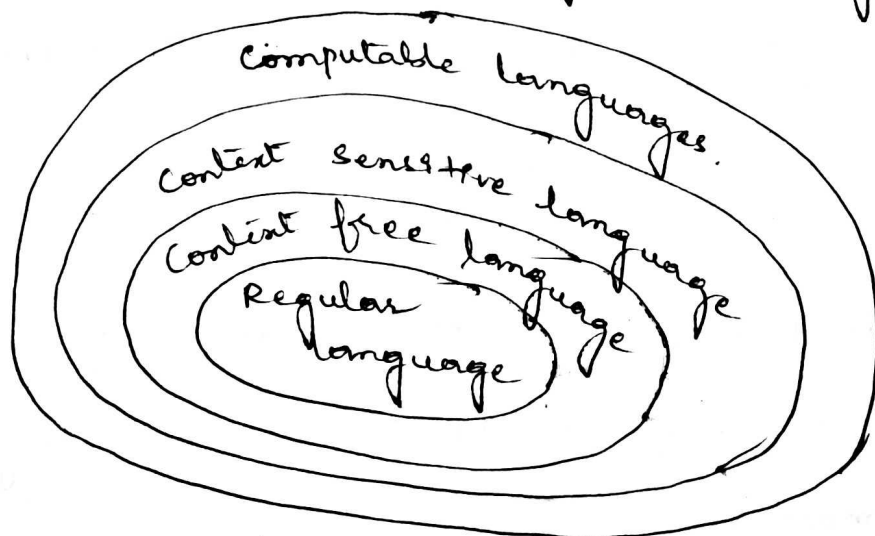 Computable languages.
Context sensitive language
Context free language
Regular
language